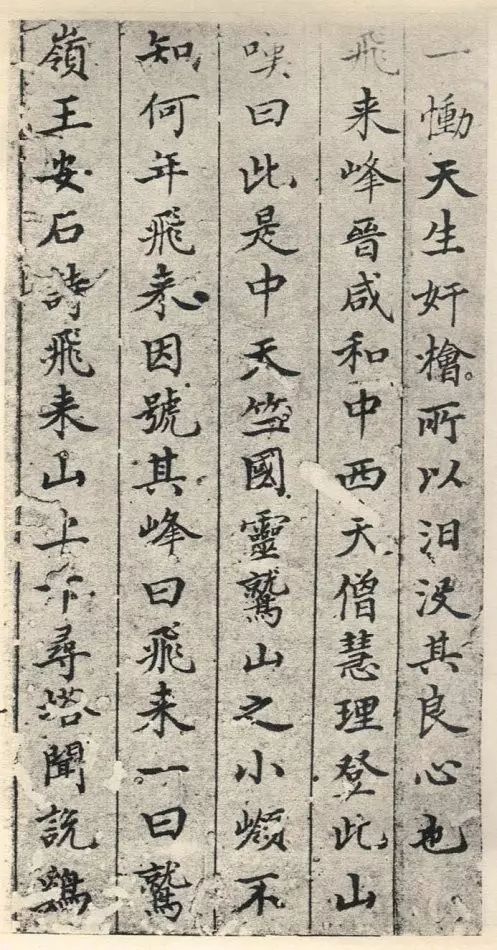 一慟天生奸檜所以汩沒其良心也
飛来峰晉咸和中西天僧慧理登此山
嘆曰此是中天竺國靈鷲山之小嶺不
知何年飛来因號其峰曰飛来一曰鷲
嶺王安石詩飛来山上下尋塔聞說鷄